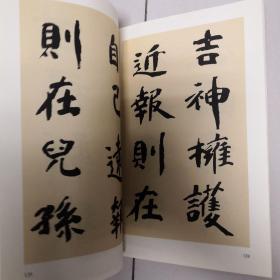 吉神擁護
近報則在
自己遠報
則在兒孫